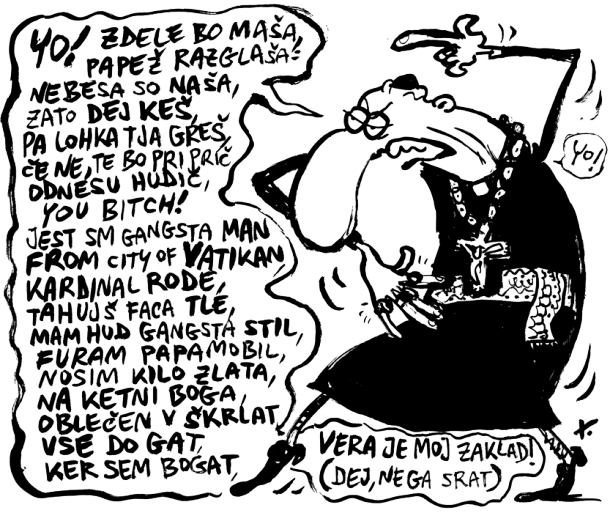 YO! ZDELE BO MAŠA,
PAPEŽ RAZGLAŠA:
NEBESA SO NAŠA,
ZATO DEJ KEŠ,
PA LOHKA TJA GREŠ,
ČE NE, TE BO PRI PRIČ
ODNESU HUDIČ,
YOU BITCH!
JEST SM GANGSTA MAN
FROM CITY OF VATIKAN
KARDINAL RODE,
TAHUJŠ FACA TLE,
MAM HUD GANGSTA STIL,
FURAM PAPAMOBIL,
NOSIM KILO ZLATA,
NA KETNI BOGA,
OBLEČEN V ŠKRLAT,
VSE DO GAT,
KER SEM BOGAT,
YO!
VERA JE MOJ ZAKLAD!
(DEJ, NEGA SRAT)